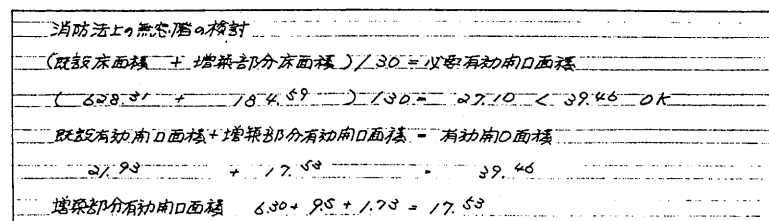 消防法上の無窓階の検討
(既設床面積 + 増築部分床面積)/30 = 必要有効開口面積
( 628.31 + 184.59 )/30 = 27.10 < 39.46 OK
既設有効開口面積+増築部分有効開口面積 = 有効開口面積
21.93 + 17.53 = 39.46
増築部分有効開口面積 6.30+9.5+1.73 = 17.53